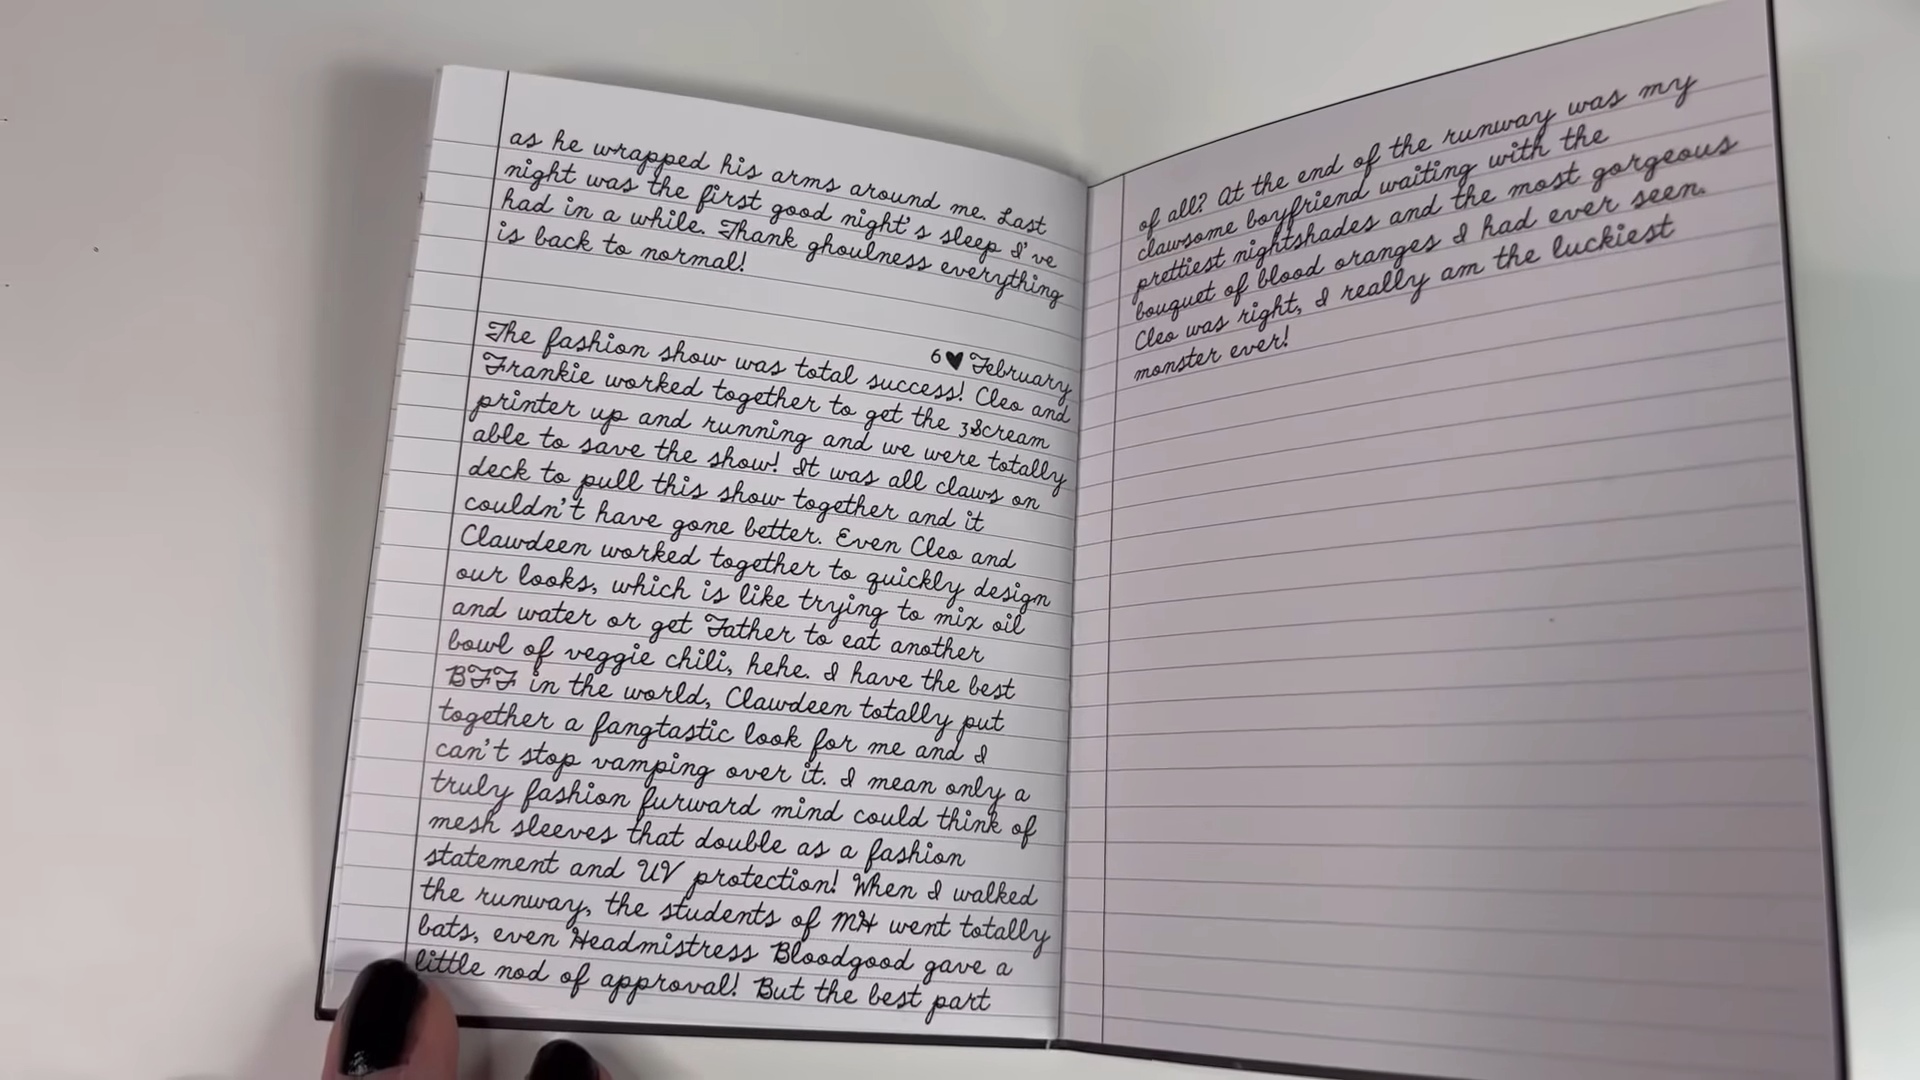 as he wrapped his arms around me. Last
night was the first good night's sleep I've
had in a while. Thank ghoulness everything
is back to normal!
6 ♥ February
The fashion show was total success! Cleo and
Frankie worked together to get the 3Scream
printer up and running and we were totally
able to save the show! It was all claws on
deck to pull this show together and it
couldn't have gone better. Even Cleo and
Clawdeen worked together to quickly design
our looks, which is like trying to mix oil
and water or get Father to eat another
bowl of veggie chili, hehe. I have the best
BFF in the world, Clawdeen totally put
together a fangtastic look for me and I
can't stop vamping over it. I mean only a
truly fashion furward mind could think of
mesh sleeves that double as a fashion
statement and UV protection! When I walked
the runway, the students of MH went totally
bats, even Headmistress Bloodgood gave a
little nod of approval! But the best part
of all? At the end of the runway was my
clawsome boyfriend waiting with the
prettiest nightshades and the most gorgeous
bouquet of blood oranges I had ever seen.
Cleo was right, I really am the luckiest
monster ever!